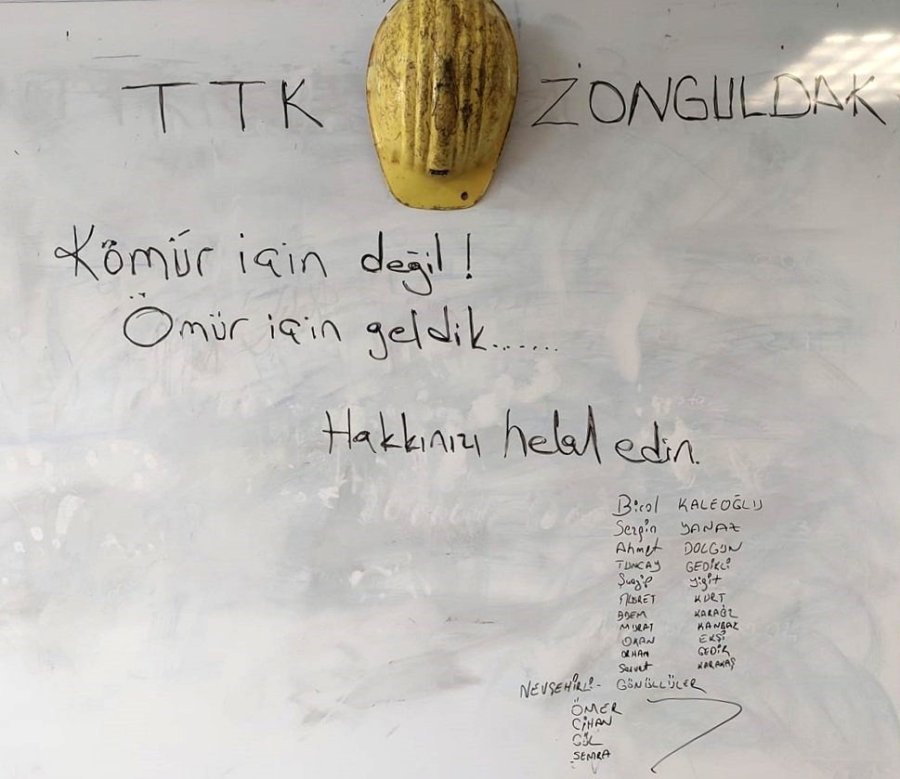 TTK ZONGULDAK
Kömür için değil!
Ömür için geldik......
Hakkınızı helal edin.
Birol KALEOĞLU
Sezgin YANAZ
Ahmet DOLGUN
TUNCAY GEDİKLİ
Yiğit
KURT
ADEM KARAÖZ
MURAT KANBAZ
OKAN EKŞİ
ORHAN GEDİK
Servet KARAKAŞ
NEVŞEHİRLİ- GÖNÜLLÜLER
ÖMER
CİHAN
GÜL
SEMRA